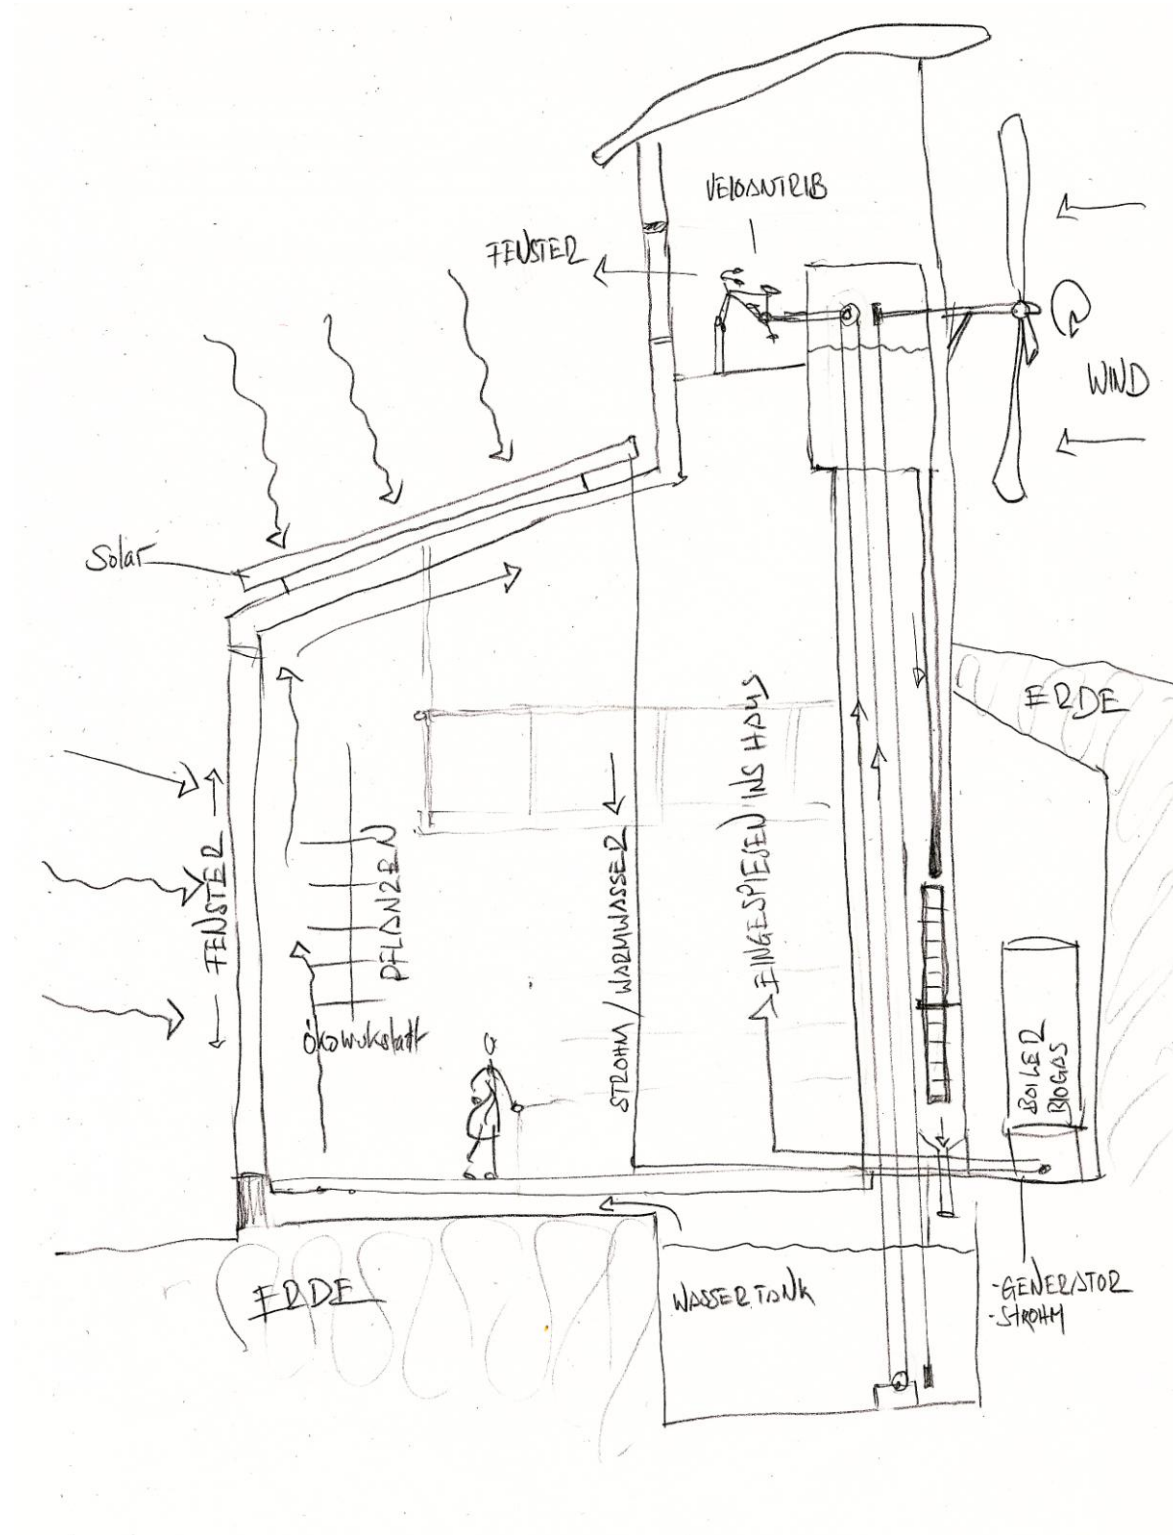 VELOANTRIB
FENSTER
WIND
Solar
ERDE
FENSTER
PFLANZEN
STROHM / WARMWASSER
EINGESPIESEN INS HAUS
ökowerkstatt
BOILER
BIOGAS
ERDE
WASSERTANK
-GENERATOR
-STROHM